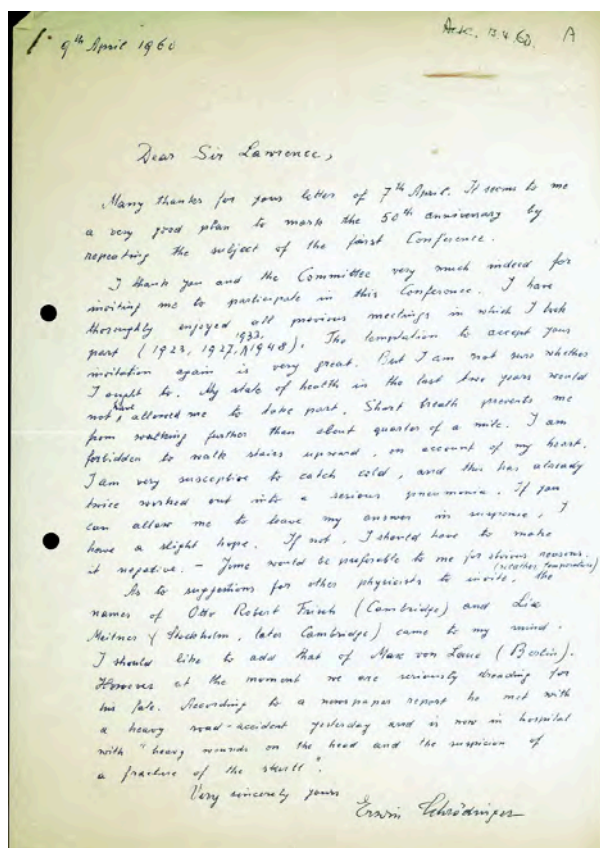 9th April 1960
Ack. 13.4.60. A
Dear Sir Lawrence,
Many thanks for your letter of 7th April. It seems to me
a very good plan to mark the 50th anniversary by
repeating the subject of the first Conference.
I thank you and the Committee very much indeed for
inviting me to participate in this Conference. I have
thoroughly enjoyed all previous meetings in which I took
part (1923, 1927, 1933, 1948). The temptation to accept your
invitation again is very great. But I am not sure whether
I ought to. My state of health in the last two years would
not have allowed me to take part. Short breath prevents me
from walking further than about quarter of a mile. I am
forbidden to walk stairs upward, on account of my heart.
I am very susceptive to catch cold, and this has already
twice worked out into a serious pneumonia. If you
can allow me to leave my answer in suspense, I
have a slight hope. If not, I should have to make
it negative. – June would be preferable to me for obvious reasons.
(weather, temperature)
As to suggestions for other physicists to invite, the
names of Otto Robert Frisch (Cambridge) and Lise
Meitner (Stockholm, later Cambridge) came to my mind.
I should like to add that of Max von Laue (Berlin).
However at the moment we are seriously dreading for
his fate. According to a newspaper report he met with
a heavy road-accident yesterday and is now in hospital
with "heavy wounds on the head and the suspicion of
a fracture of the skull".
Very sincerely yours
Erwin Schrödinger